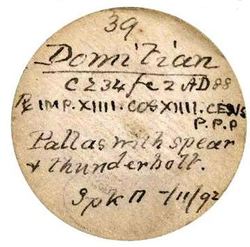 39
Domitian
C 234 fc 2 AD 88
IMP. XIIII. COS XIIII. CENS
P. P. P
Pallas with spear
& thunderbolt.
-/11/92